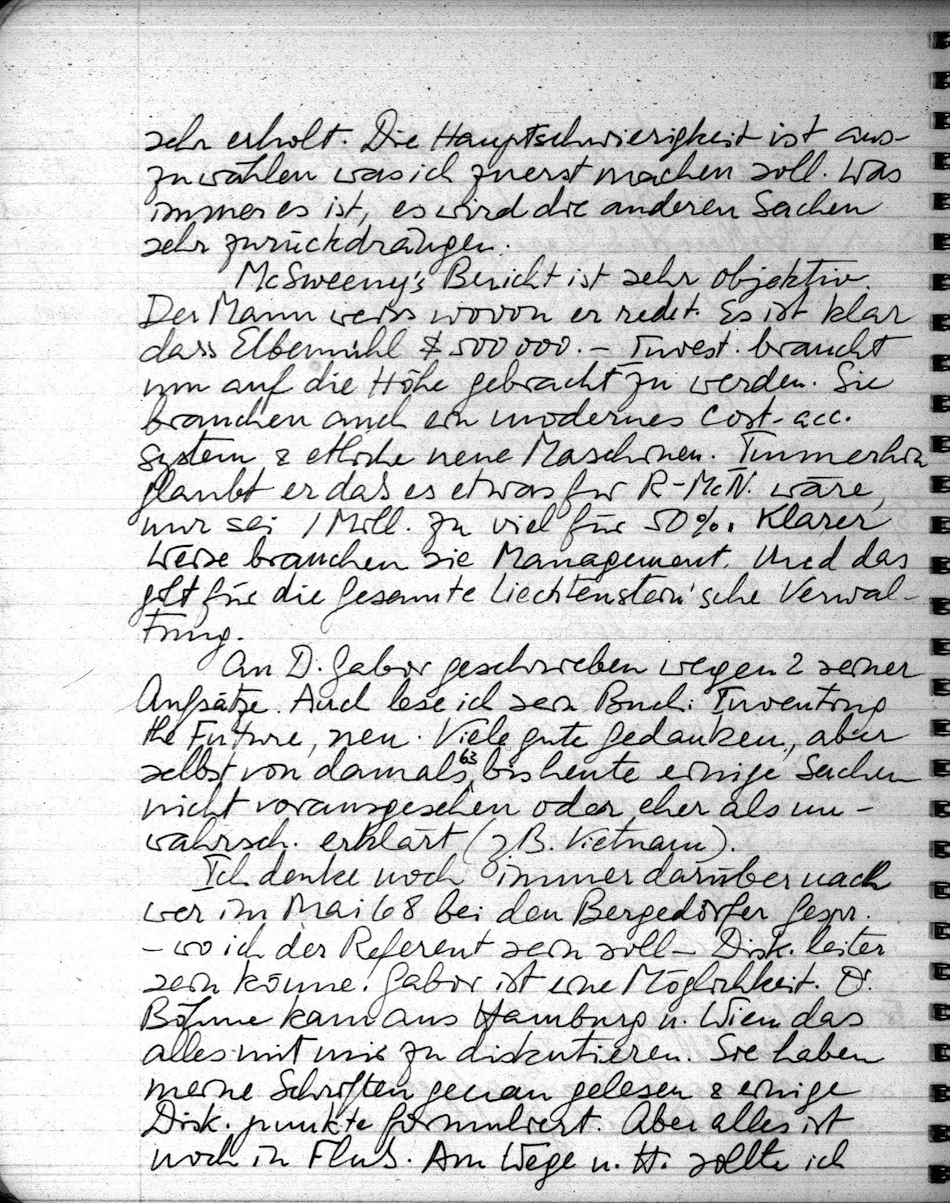 sehr erholt. Die Hauptschwierigkeit ist aus-
zuwählen was ich zuerst machen soll. Was
immer es ist, es wird die anderen Sachen
sehr zurückdrängen.
McSweeny's Bericht ist sehr objektiv.
Der Mann weiss wovon er redet. Es ist klar
dass Elbemühl $ 500 000.– Invest. braucht
um auf die Höhe gebracht zu werden. Sie
brauchen auch ein modernes Cost-acc.
system & etliche neue Maschinen. Immerhin
glaubt er das es etwas für R-McN. wäre,
nur sei 1 Mill. zu viel für 50%. Klarer
Weise brauchen sie Management. Und das
gilt für die gesamte Liechtenstein'sche Verwal-
tung.
An D. Gabor geschrieben wegen 2 seiner
Aufsätze. Auch lese ich sein Buch: Inventing
the Future, neu. Viele gute Gedanken, aber
selbst von damals, 63 bis heute einige Sachen
nicht vorausgesehen oder eher als un-
wahrsch. erklärt (z B. Vietnam).
Ich denke noch immer darüber nach
wer im Mai 68 bei den Bergedorfer Gespr.
– wo ich der Referent sein soll – Disk. leiter
sein könne. Gabor ist eine Möglichkeit. D.
Böhme kam aus Hamburg n. Wien das
alles mit mir zu diskutieren. Sie haben
meine Schriften genau gelesen & einige
Disk. punkte formuliert. Aber alles ist
noch in Fluß. Am Wege n. H. sollte ich